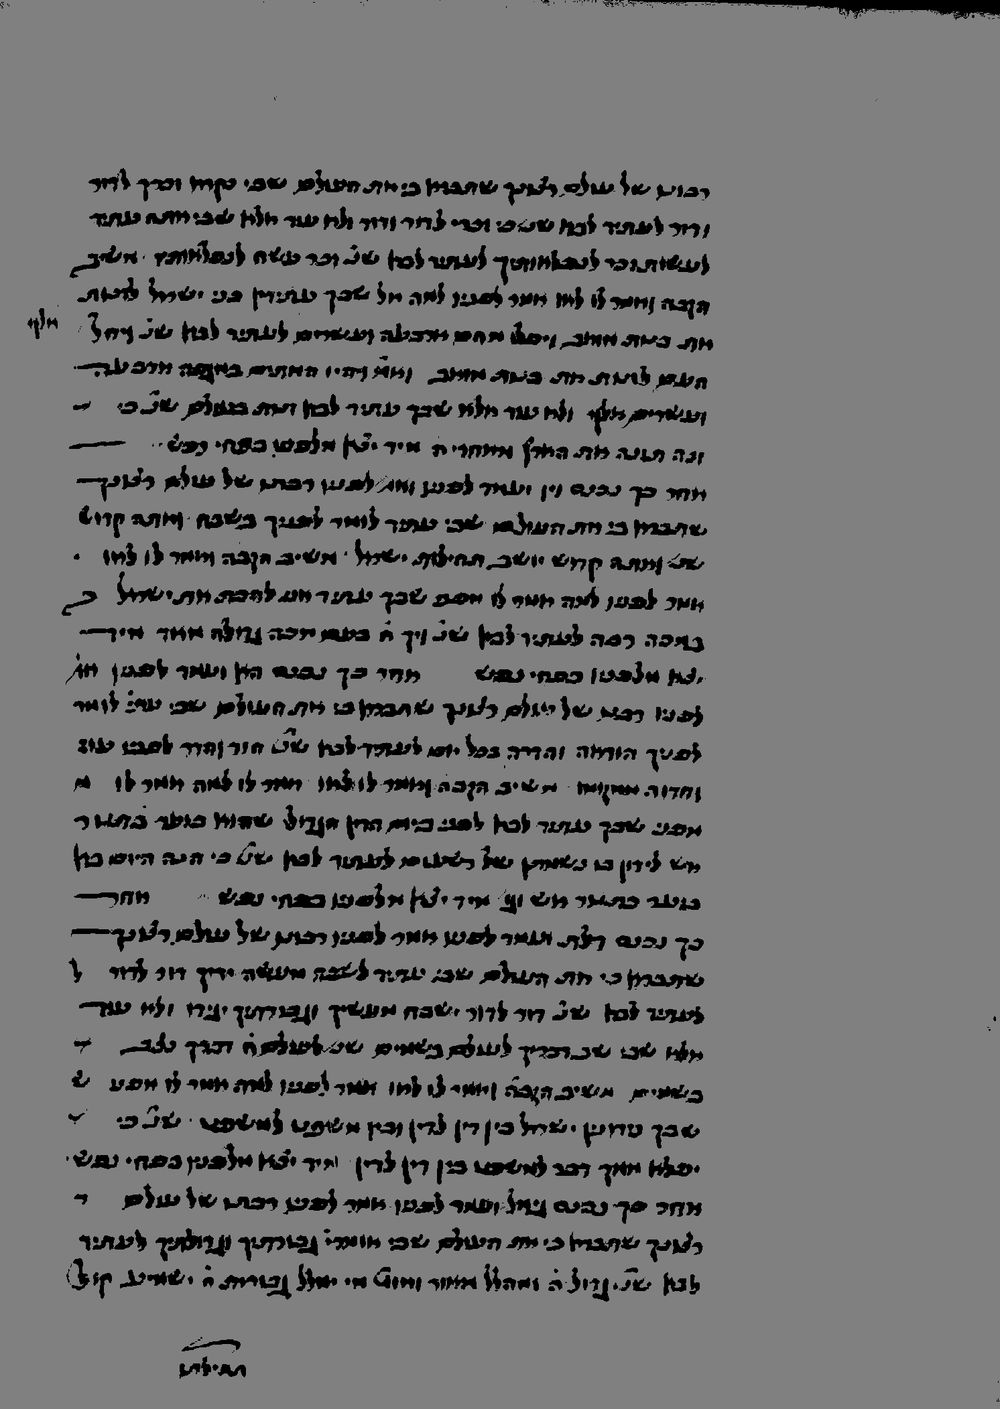 רבונו של עולם רצונך שתברא בי את העולם שבי קרוא זכרך לדור
ודור לעתיד לבא שנ׳ זכרי לדור ודור ולא עוד אלא שבי אתה עתיד
לעשות זכר לנפלאותיך לעתיד לבא שנ׳ זכר עשה לנפלאותיו משיב
הקבה ואומר לו לאו אמר לפניו למה אל שבך עתידין בני ישראל לזנות
את בנות מואב ויפלו מהם ארבעה ועשרים לעתיד לבא שנ׳ ויחל
אלף
העם לזנות את בנות מואב ואו׳ ויהיו המתים במגפה ארבעה
ועשרים אלף ולא עוד אלא שבך עתיד לבא זנות בעולם שנ׳ כי
זנה תזנה את הארץ מאחרי ה׳ מיד יצא מלפניו בפחי נפש
אחר כך נכנס זין ועמד לפניו ואמ׳ לפניו רבונו של עולם רצונך
שתברא בי את העולם שבי עתיד לומר לפניך בשבח ואתה קדוש
שנ׳ ואתה קדוש יושב תהילות ישראל משיב הקבה ואומר לו לאו
אמר לפניו למה אמר לו מפני שבך עתיד אני להכות את ישראל
במכה רבה לעתיד לבא שנ׳ ויך ה׳ בעם מכה גדולה מאד מיד
יצא מלפניו בפחי נפש אחר כך נכנס הא ועמד לפניו אמ׳
לפניו רבונו של עולם רצונך שתברא בי את העולם שבי עתיד לומר
לפניך הודאה והדרה בכל יום לעתיד לבא שנ׳ הוד והדר לפניו עוז
וחדוה במקומו משיב הקבה ואומר לו לאו אמר לו למה אמר לו
מפני שבך עתיד לבא לפני ביום הדין הגדול שהוא בוער כתנור
אש לידון בו נשמתן של רשעים לעתיד לבא שנ׳ כי הנה היום בא
בוער כתנור אש וגו׳ מיד יצא מלפניו בפחי נפש אחר
כך נכנס דלת ועמד לפניו אמר לפניו רבונו של עולם רצונך
שתברא בי את העולם שבי עתיד לשבח מעשה ידיך דור לדור
לעתיד לבא שנ׳ דור לדור ישבח מעשיך וגבורתיך יגידו ולא עוד
אלא שבי שב דבריך לעולם בשמים שנ׳ לעולם ה׳ דברך נצב
בשמים משיב הקבה ואומר לו לאו אמר לפניו למה אמר לו מפני
שבך נידונין ישראל בין דין לדין ובין משפט למשפט שנ׳ כי
יפלא ממך דבר למשפט בין דין לדין מיד יצא מלפניו בפחי נפש
אחר כך נכנס גימל ועמד לפניו אמר לפניו רבונו של עולם
רצונך שתברא בי את העולם שבי אומרי׳ גבורתיך וגדולתיך לעתיד
לבא שנ׳ גדול ה׳ ומהלל מאוד ואומ׳ מי ימלל גבורות ה׳ ישמיע
תהילתו